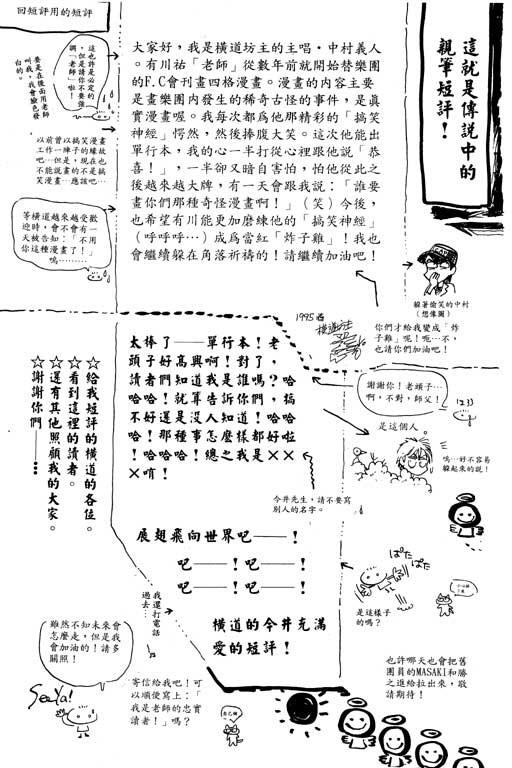 回短評用的短評
這就是傳說中的
親筆短評！
大家好，我是橫道坊主的主唱・中村義人
。有川祐「老師」從數年前就開始替樂團
的F.C會刊畫四格漫畫。漫畫的內容主要
是畫樂團內發生的稀奇古怪的事件，是真
實漫畫喔。我每次都為他那精彩的「搞笑
神經」愕然，然後捧腹大笑。這次他能出
單行本，我的心一半打從心裡跟他說「恭
喜！」，一半卻又暗自害怕，怕他從此之
後越來越大牌，有一天會跟我說：「誰要
畫你們那種奇怪漫畫啊！」（笑）今後，
也希望有川能更加磨練他的「搞笑神經」
（呼呼呼…）成為當紅「炸子雞」！我也
會繼續躲在角落祈禱的！請繼續加油吧！
這也許是必定的
，但是請你不要強
調「老師」啦！
要是在後面用老師
叫我，我會臉色發
白的。
以前曾以搞笑漫畫
工作一陣子的緣故
吧…但是，現在也
不能說畫的不是搞
笑漫畫…應該吧…
等橫道越來越受歡
迎時，會不會有一
天被告知：「不用
你這種漫畫了！」
嗚……
躲著偷笑的中村
（想像圖）
你們才給我變成「炸
子雞」呢！呃…不，
也請你們加油吧！
1995
太棒了——單行本！老
頭子好高興啊！對了，
讀者們知道我是誰嗎？哈
哈哈！就算告訴你們，搞
不好還是沒人知道！哈哈
哈！那種事怎麼樣都好啦
！哈哈哈！總之我是××
×唷！
☆給我短評的橫道的各位。
☆看到這裡的讀者。
☆還有其他照顧我的大家。
☆謝謝你們——……
謝謝你！老頭子…
啊，不對，師父！
是這個人
嗚…好不容易
躲起來的說！
今井先生，請不要寫
別人的名字。
展翅飛向世界吧——！
吧——！吧——！
吧——！吧——！
橫道的今井充滿
愛的短評！
我還打電話
過去…
ぱた
ぱた
是這樣子
的嗎？
雖然不知未來會
怎麼走，但是我
會加油的！請多
關照！
Seeya!
寄信給我吧！可
以順便寫上：「
我是老師的忠實
讀者！」嗎？
也許哪天也會把舊
團員的MASAKI和勝
之進給拉出來，敬
請期待！